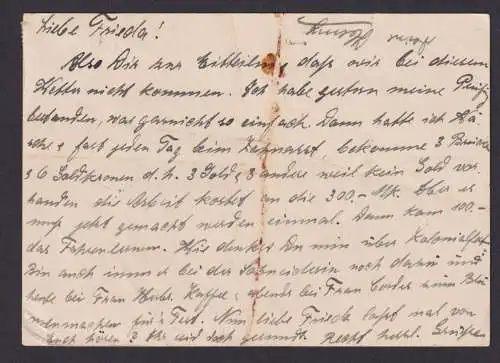 Liebe Frieda!
Also Dir zur Mitteilung, daß wir bei diesem
Wetter nicht kommen. Ich habe gestern meine Prüfg.
bestanden, war garnicht so einfach. Dann hatte ich
u. fast jeden Tag beim Zahnarzt, bekomme 3 Brücken
u 6 Goldkronen d.h. 3 Gold, 3 andere weil kein Gold vor-
handen die Arbeit kostet an die 300.- Mk. Aber es
muß jetzt gemacht werden einmal. Dann kam 100.-
das Fahrenlernen. Wie denkst Du nun über
Bin auch immer bei der Schneiderin noch dazu und
heute bei Frau Kaffee, abends bei Frau zum Blu
menmachen für's Fest. Nun liebe Frieda laßt mal von
Euch hören 3 Uhr und doch gesund. Recht herzl.